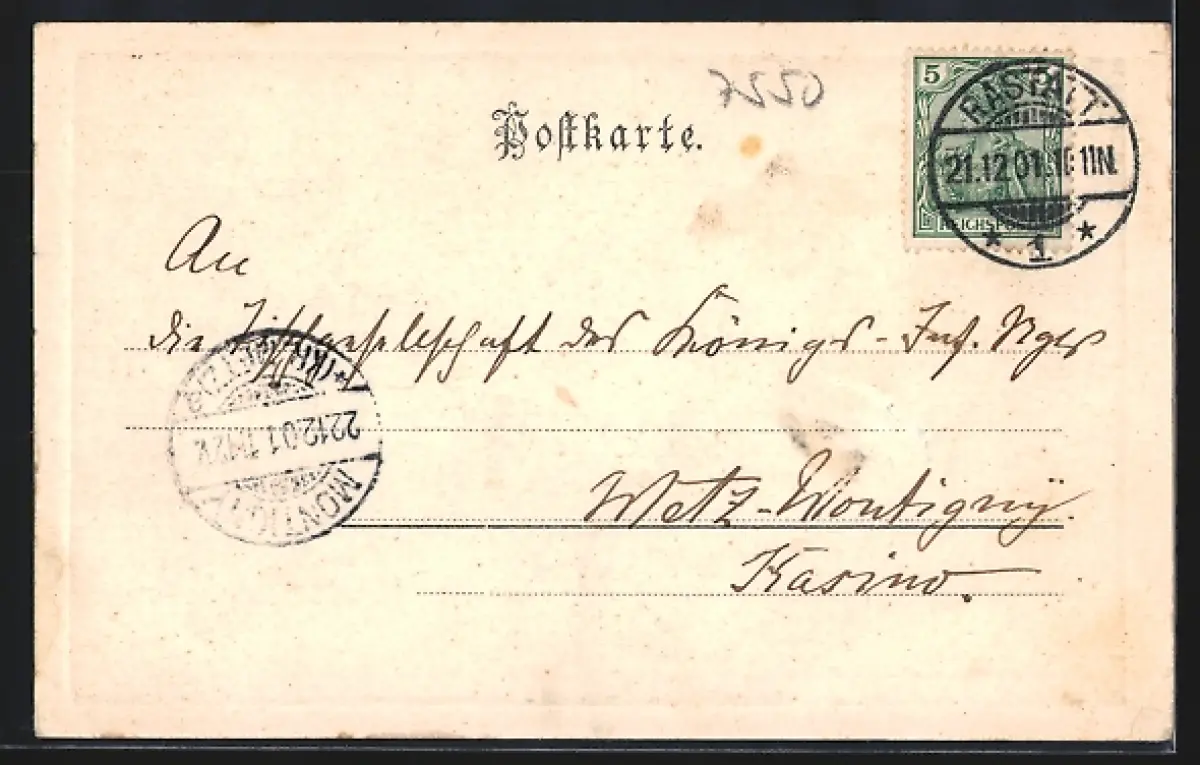 7250
Postkarte.
5 5
REICHSPOST
RASTATT
21.12.01. 11N.
* 1 *
An
die Tischgesellschaft des Königs-Inf. Rgts
22.12.01
MONTIGNY
Metz-Montigny.
Kasino.